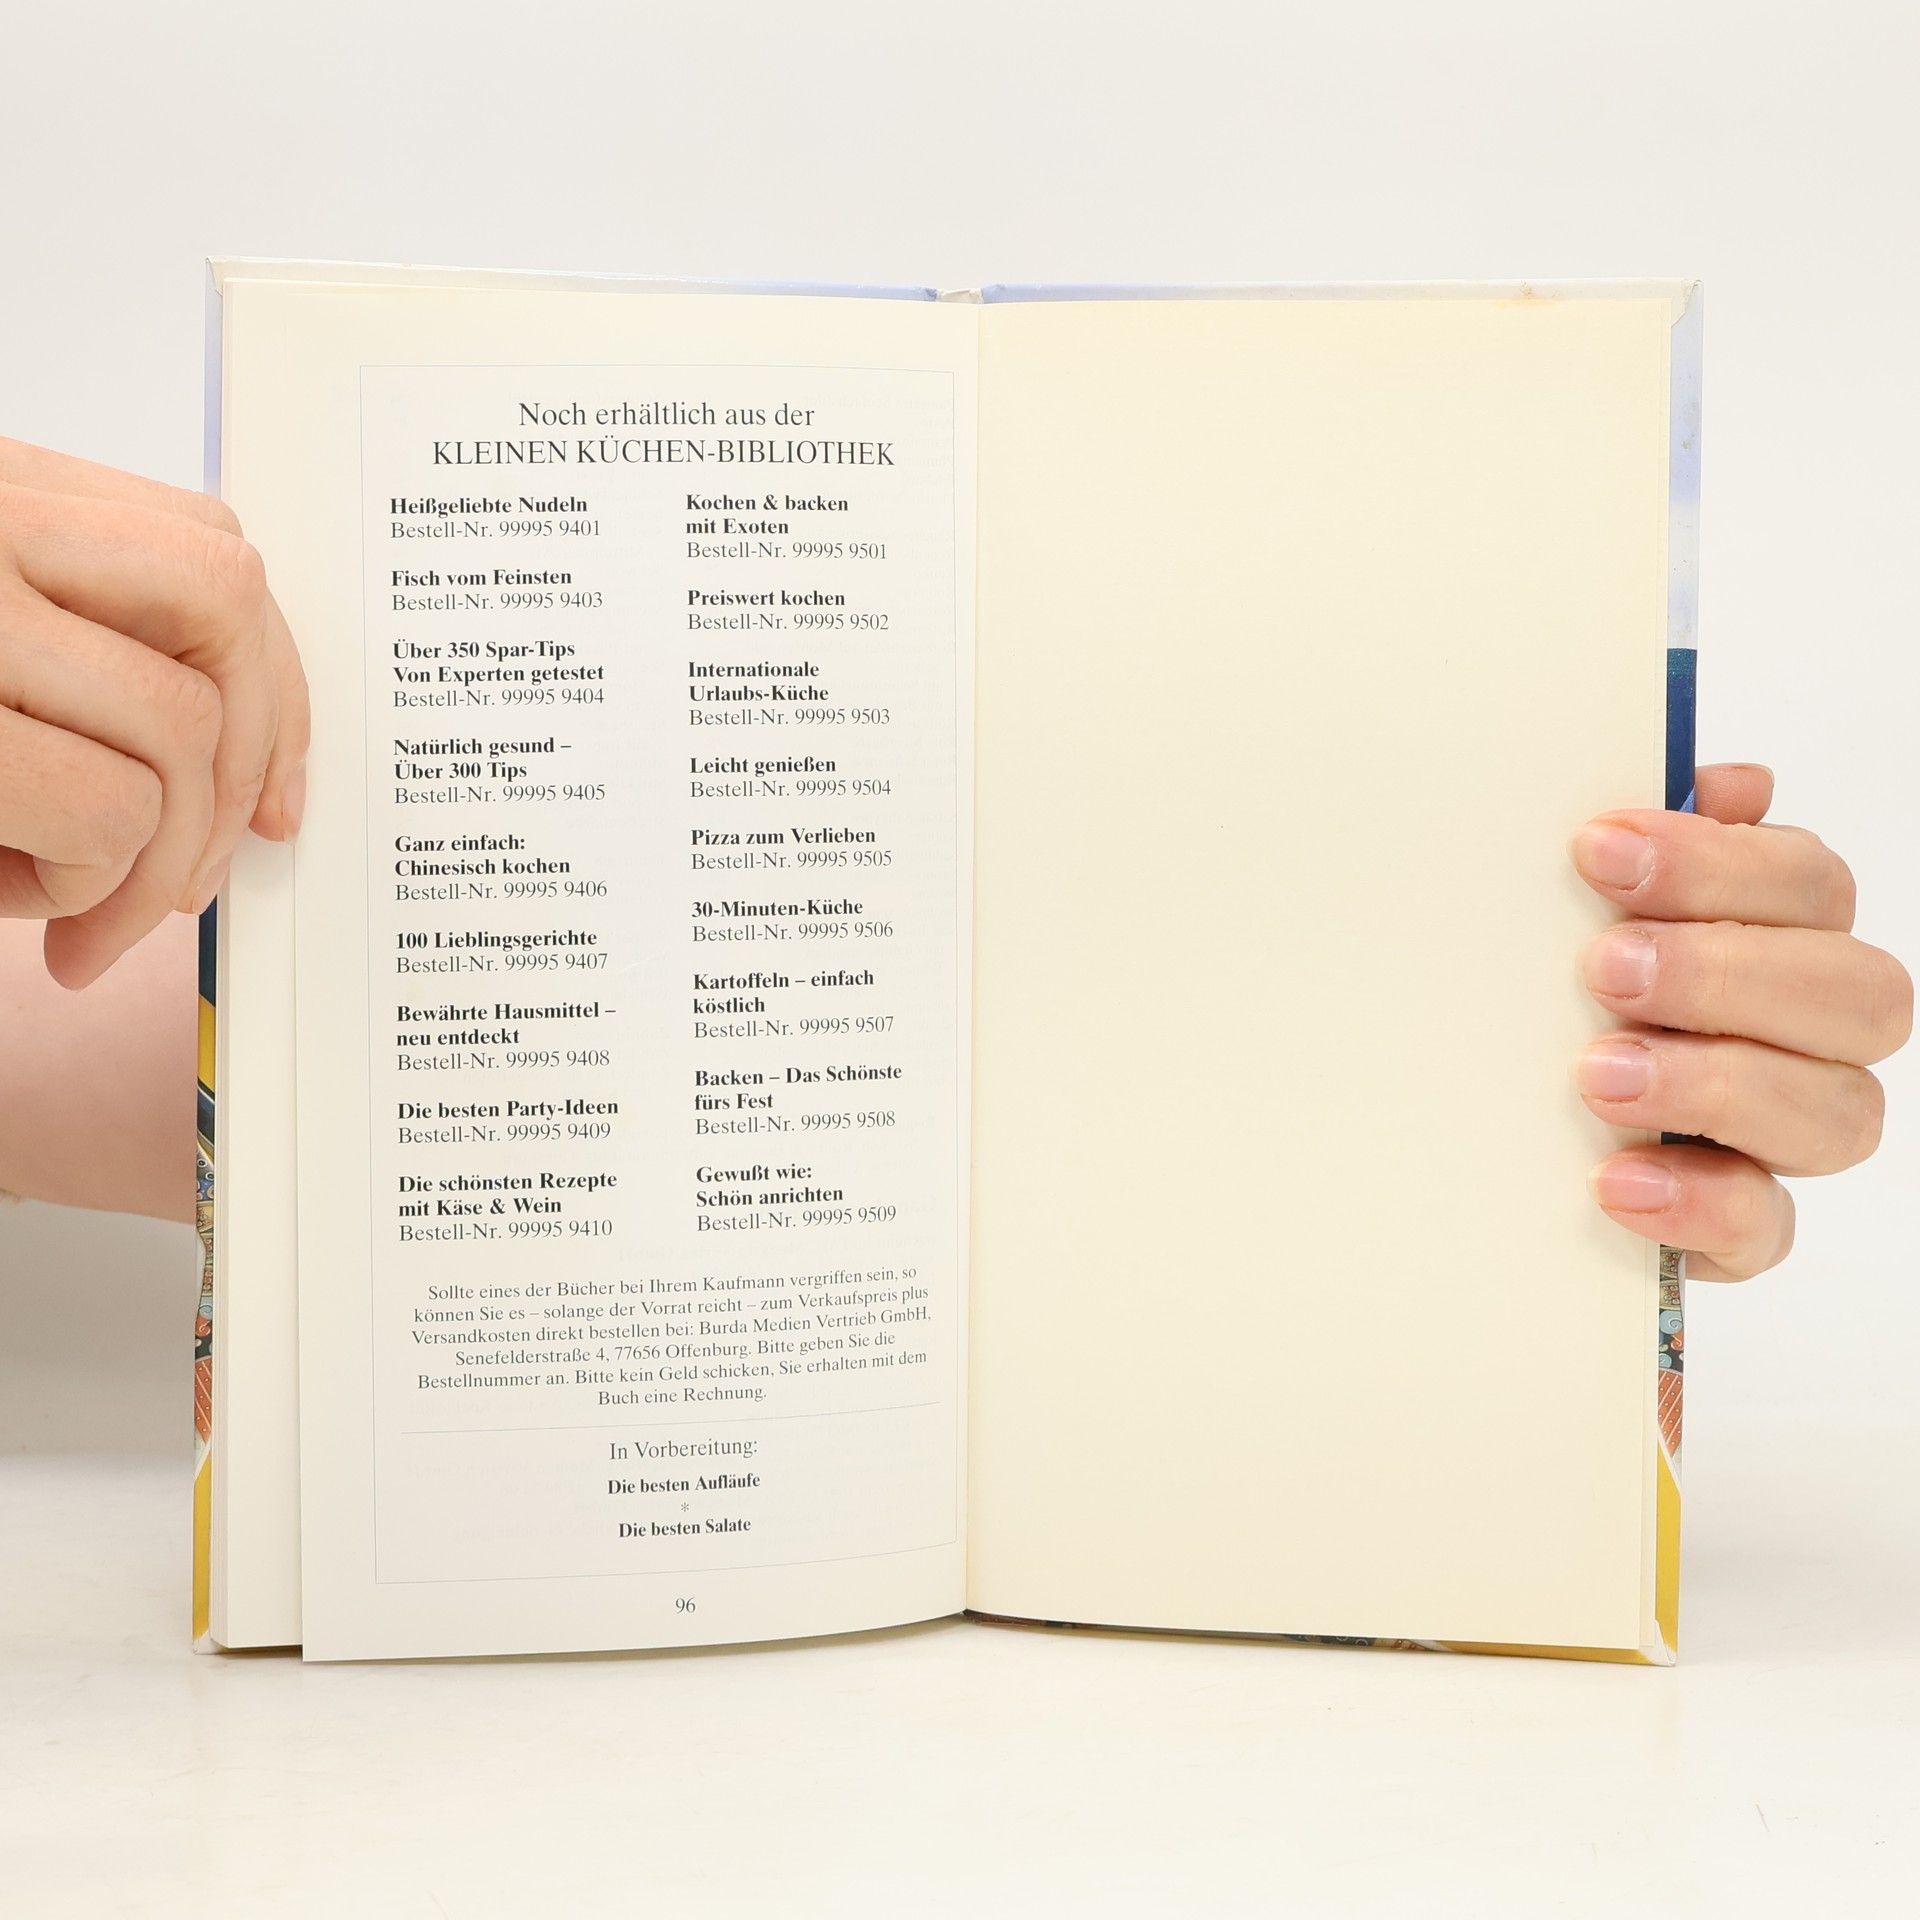 Noch erhältlich aus der
KLEINEN KÜCHEN-BIBLIOTHEK
Heißgeliebte Nudeln
Bestell-Nr. 99995 9401
Fisch vom Feinsten
Bestell-Nr. 99995 9403
Über 350 Spar-Tips
Von Experten getestet
Bestell-Nr. 99995 9404
Natürlich gesund –
Über 300 Tips
Bestell-Nr. 99995 9405
Ganz einfach:
Chinesisch kochen
Bestell-Nr. 99995 9406
100 Lieblingsgerichte
Bestell-Nr. 99995 9407
Bewährte Hausmittel –
neu entdeckt
Bestell-Nr. 99995 9408
Die besten Party-Ideen
Bestell-Nr. 99995 9409
Die schönsten Rezepte
mit Käse & Wein
Bestell-Nr. 99995 9410
Kochen & backen
mit Exoten
Bestell-Nr. 99995 9501
Preiswert kochen
Bestell-Nr. 99995 9502
Internationale
Urlaubs-Küche
Bestell-Nr. 99995 9503
Leicht genießen
Bestell-Nr. 99995 9504
Pizza zum Verlieben
Bestell-Nr. 99995 9505
30-Minuten-Küche
Bestell-Nr. 99995 9506
Kartoffeln – einfach
köstlich
Bestell-Nr. 99995 9507
Backen – Das Schönste
fürs Fest
Bestell-Nr. 99995 9508
Gewußt wie:
Schön anrichten
Bestell-Nr. 99995 9509
Sollte eines der Bücher bei Ihrem Kaufmann vergriffen sein, so
können Sie es – solange der Vorrat reicht – zum Verkaufspreis plus
Versandkosten direkt bestellen bei: Burda Medien Vertrieb GmbH,
Senefelderstraße 4, 77656 Offenburg. Bitte geben Sie die
Bestellnummer an. Bitte kein Geld schicken, Sie erhalten mit dem
Buch eine Rechnung.
In Vorbereitung:
Die besten Aufläufe
*
Die besten Salate
96